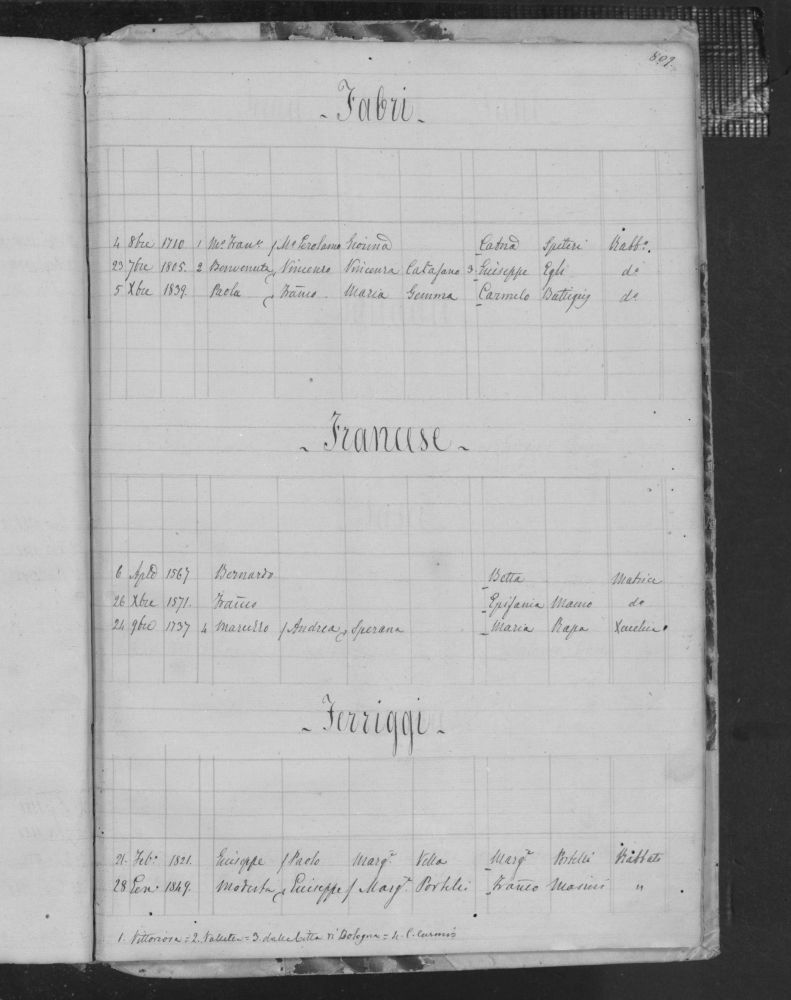 809.
- Fabri -
4 8bre 1710 1 Mo Franco / Mo Gerolamo Gioanna Catna Spiteri Rabbo.
23 7bre 1805. 2 Benvenuta, Vincenzo Vincenza Catafano 3 Giuseppe Egli do
5 Xbre 1839. Paola, Franco. Maria Gemma Carmelo Buttigieg do
- Francese -
6 Aple 1567 Bernardo Betta Matrice
26 Xbre 1571. Franco Epifania Mamo do
24 9bre 1737 4 Marcello / Andrea, Sperana Maria Rapa
- Ferriggi -
21. Febo. 1821. Giuseppe / Paolo Marga Vella Marga Portelli Rabbato
28 Gen. 1849. Modesta, Giuseppe / Marga. Portelli Franco "
1. Vittoriosa = 2. Valletta = 3. dalla Citta di Bologna = 4. C.